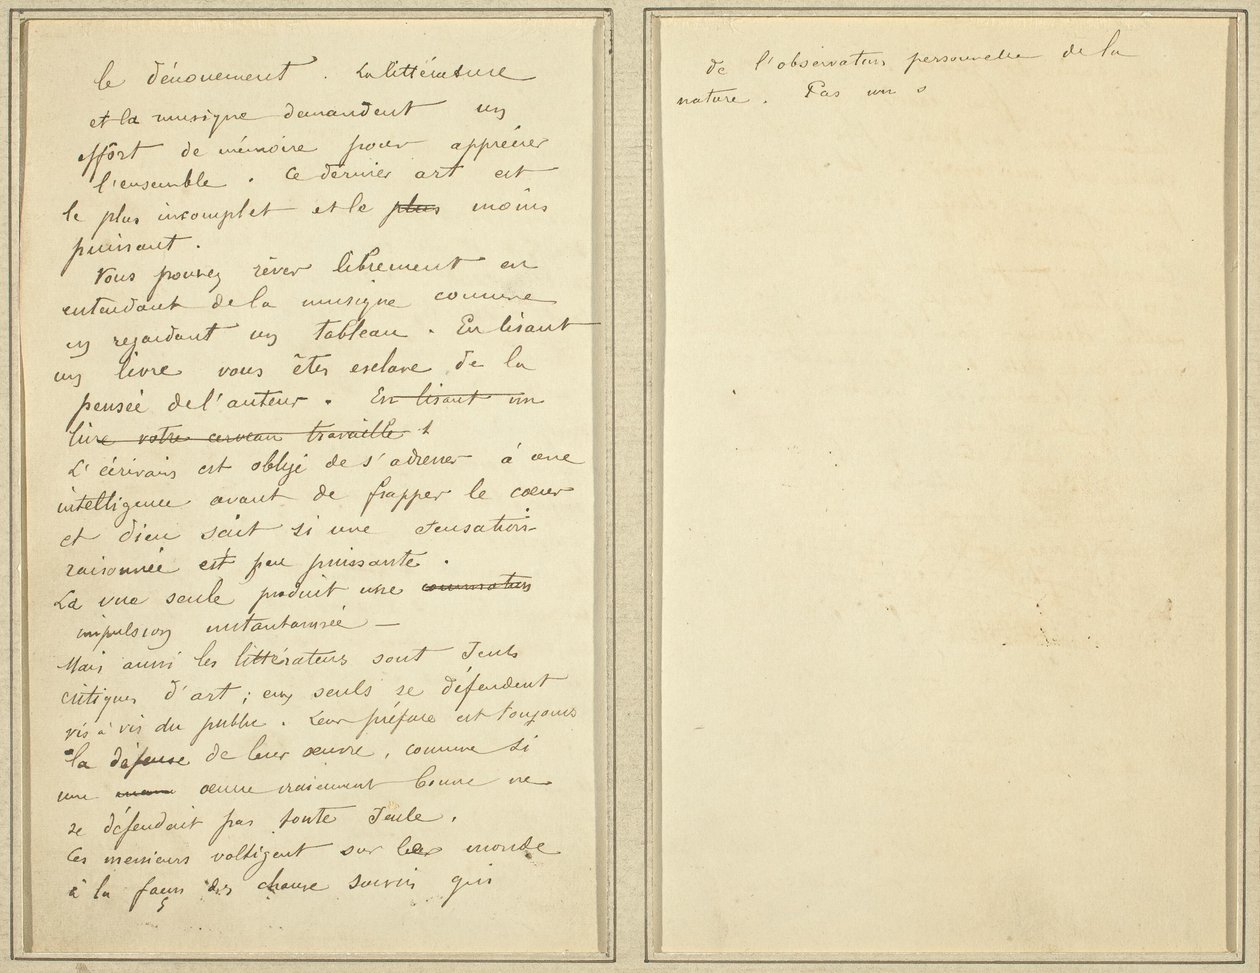 le dénouement. La littérature
et la musique demandent un
effort de mémoire pour apprécier
l'ensemble. Ce dernier art est
le plus incomplet et le plus moins
puissant.
Vous pouvez rêver librement en
entendant de la musique comme
en regardant un tableau. En lisant
un livre vous êtes esclave de la
pensée de l'auteur. En lisant un
livre votre cerveau travaille
L'écrivain est obligé de s'adresser à une
intelligence avant de frapper le cœur
et dieu sait si une sensation
raisonnée est peu puissante.
La vue seule produit une
impulsion instantanée —
Mais aussi les littérateurs sont seuls
critiques d'art ; eux seuls se défendent
vis à vis du public. Leur préface est toujours
la défense de leur œuvre, comme si
une œuvre vraiment bonne ne
se défendait pas toute seule.
Ces messieurs voltigent sur le monde
à la façon des chauve souris qui
de l'observation personnelle de la
nature. Pas un s